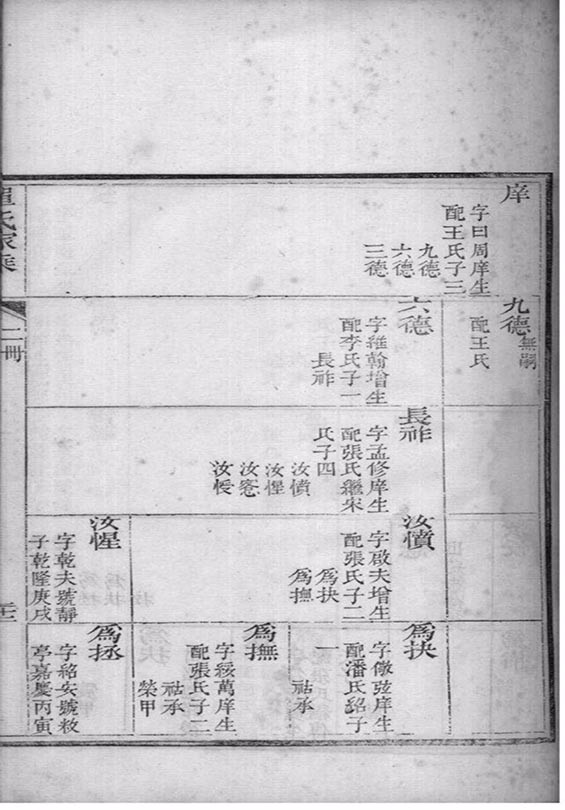 庠
字曰周庠生
配王氏子三
九德
六德
三德
九德
無嗣
配王氏
六德
字維翰增生
配李氏子一
長祚
長祚
字孟修庠生
配張氏繼宋
氏子四
汝憤
汝惺
汝愙
汝愋
汝憤
字啟夫增生
配張氏子二
為抉
為撫
汝惺
字乾夫號靜
子乾隆庚戌
為抉
字儆弦庠生
配潘氏紹子
一
祜承
為撫
字綏萬庠生
配張氏子二
祜承
榮甲
為拯
字紹安號救
亭嘉慶丙寅
氏家乘
一冊